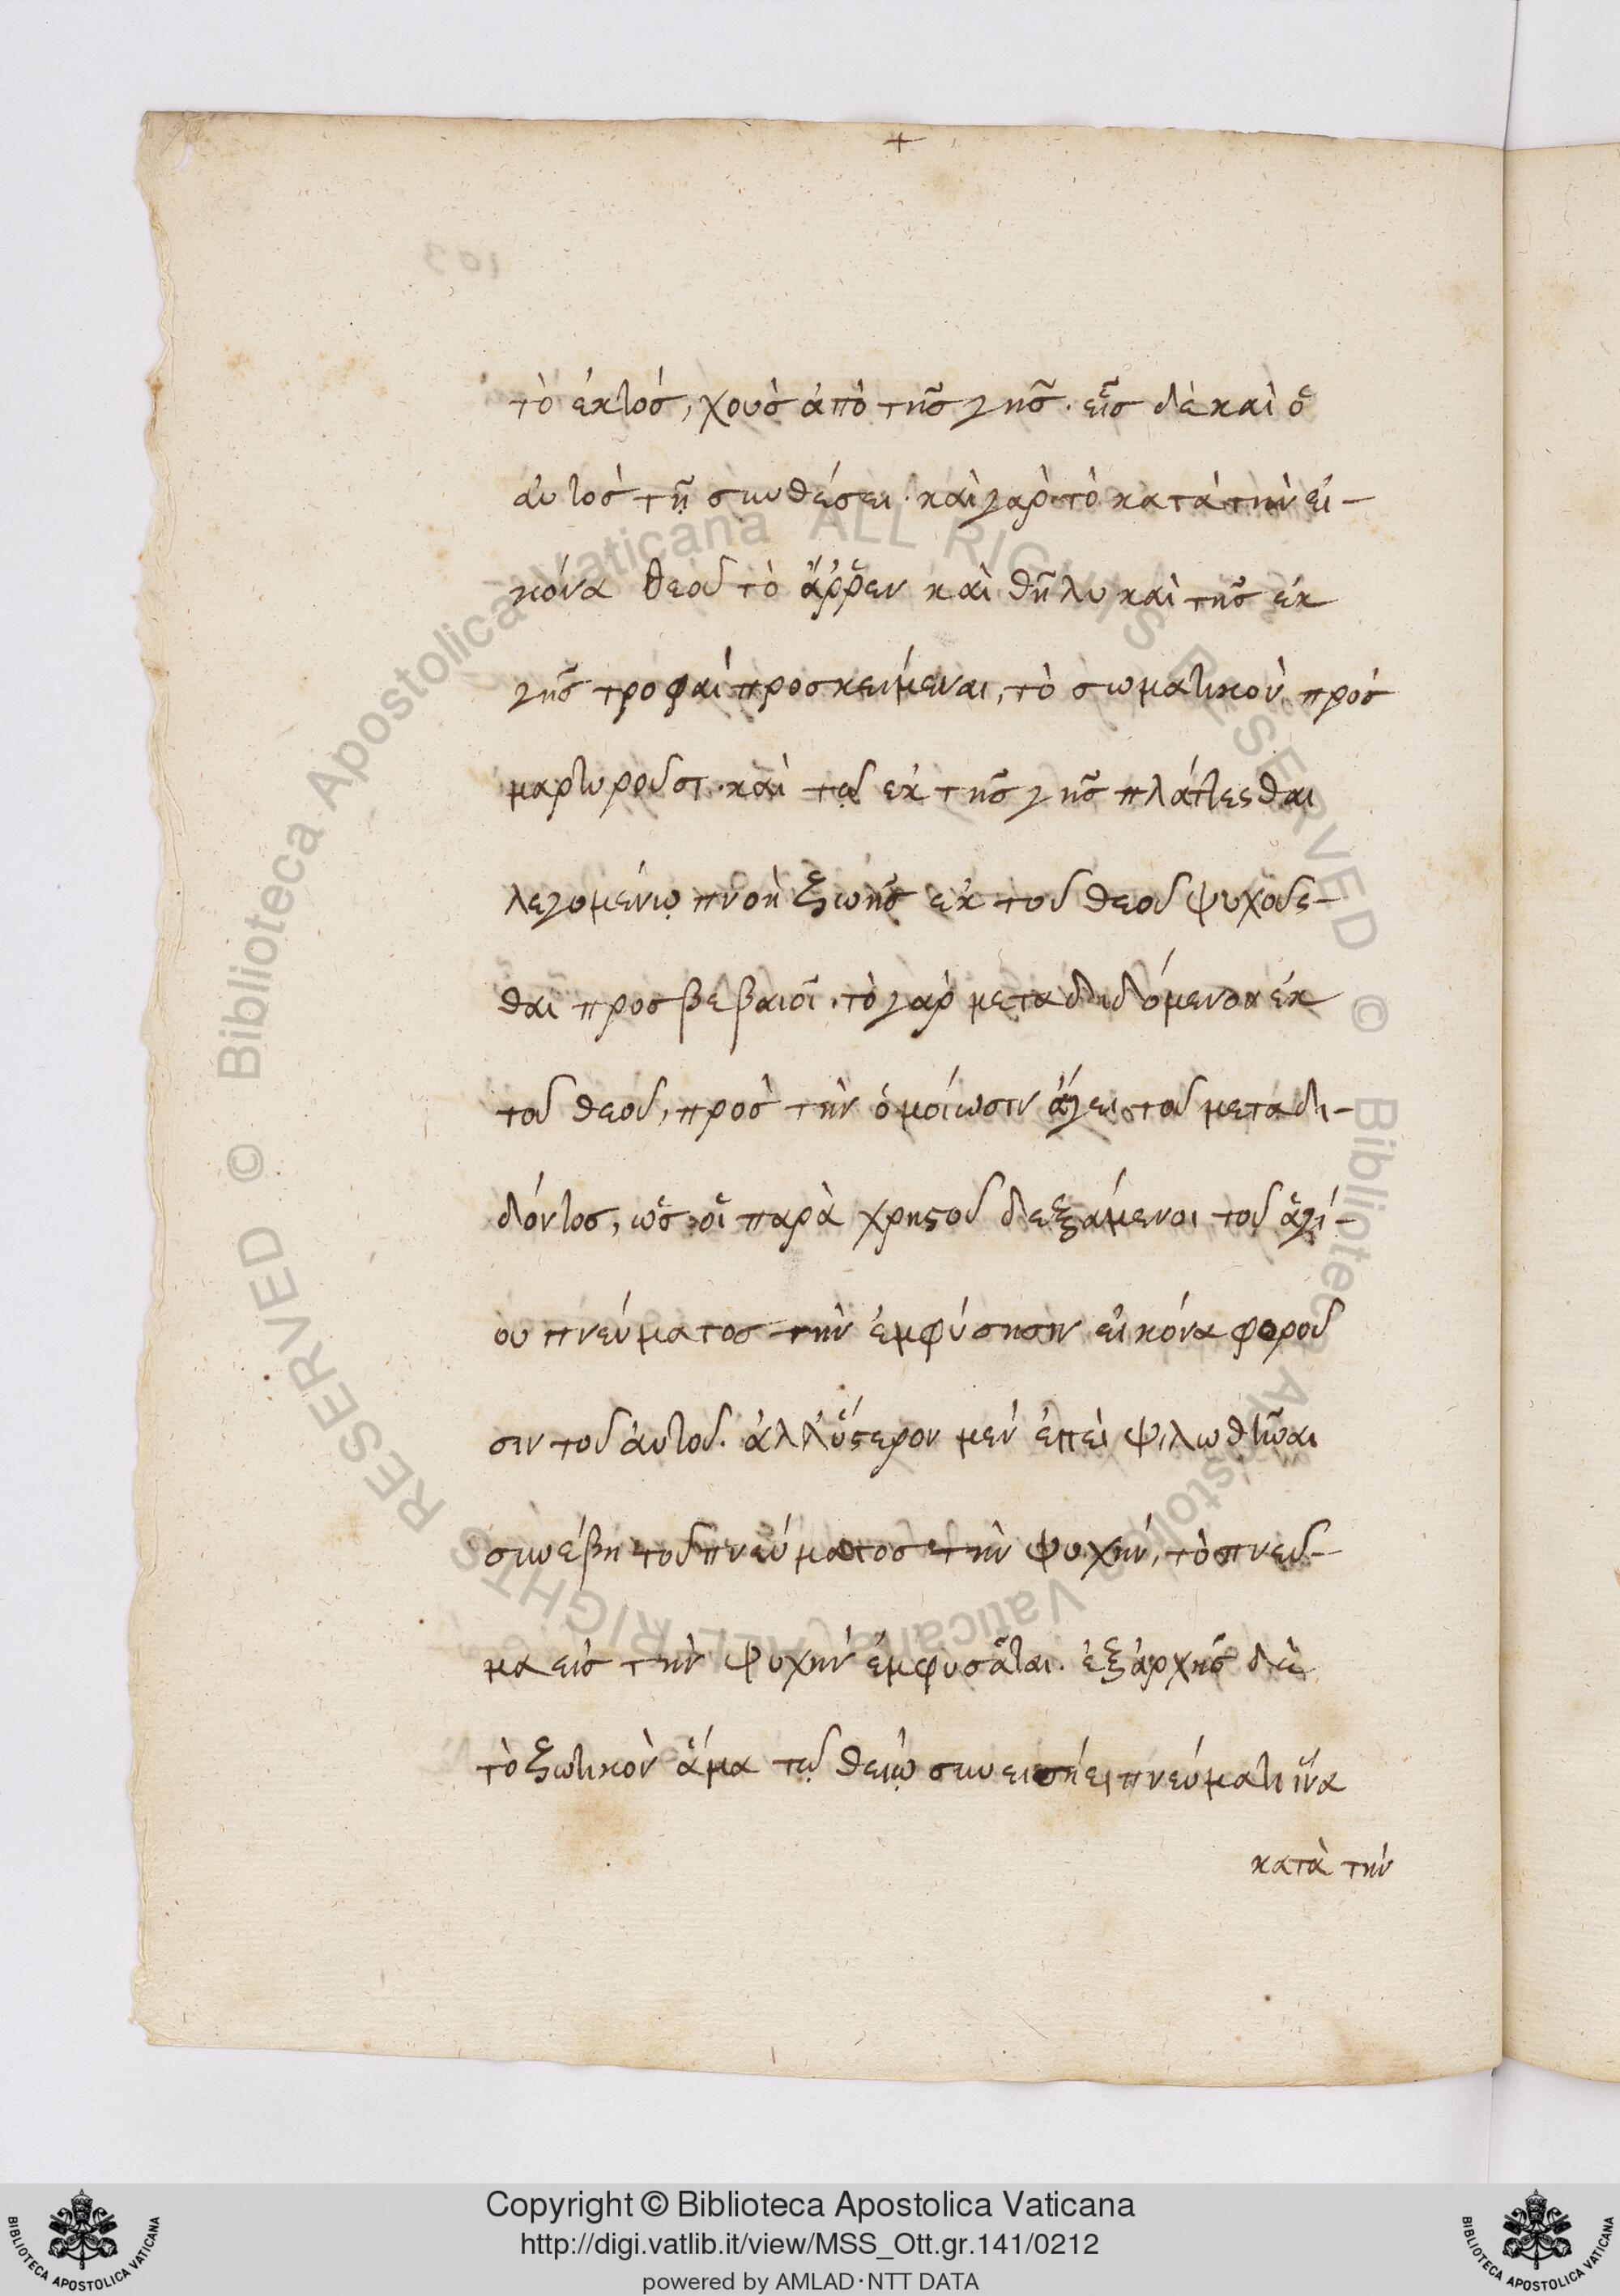 +
τὸ ἐκτὸς, χοῦς ἀπὸ τῆς γῆς. εἷς δὲ καὶ ὁ
αὐτὸς τῇ συνθέσει. καὶ γὰρ τὸ κατὰ τὴν εἰ-
κόνα θεοῦ τὸ ἄῤῥεν καὶ θῆλυ καὶ τῆς ἐκ
γῆς τροφαὶ προσκείμεναι, τὸ σωματικὸν προσ
μαρτυροῦσι. καὶ τῷ ἐκ τῆς γῆς πλάττεσθαι
λεγομένῳ πνοὴ ζωῆς ἐκ τοῦ θεοῦ ψυχοῦσ-
θαι προσβεβαιοῖ. τὸ γὰρ μεταδιδόμενον ἐκ
τοῦ θεοῦ, πρὸς τὴν ὁμοίωσιν ἄγει τοῦ μεταδι-
δόντος, ὡς οἱ παρὰ χριστοῦ δεξάμενοι τοῦ ἁγί-
ου πνεύματος τὴν ἐμφύσησιν εἰκόνα φοροῦ
σιν τοῦ ἀυτοῦ. ἀλλ' ὕστερον μὲν ἐπεὶ ψιλωθῆναι
συνέβη τοῦ πνεύματος τὴν ψυχὴν, τὸ πνεῦ-
μα εἰς τὴν ψυχὴν ἐμφυσᾶται. ἐξ ἀρχῆς δὲ
τὸ ζωτικὸν ἅμα τῷ θείῳ συνεισῄει πνεύματι ἵνα
κατὰ τὴν
Copyright © Biblioteca Apostolica Vaticana
http://digi.vatlib.it/view/MSS_Ott.gr.141/0212
powered by AMLAD·NTT DATA
BIBLIOTECA APOSTOLICA VATICANA
BIBLIOTECA APOSTOLICA VATICANA
© Biblioteca Apostolica Vaticana ALL RIGHTS RESERVED © Biblioteca Apostolica Vaticana ALL RIGHTS RESERVED